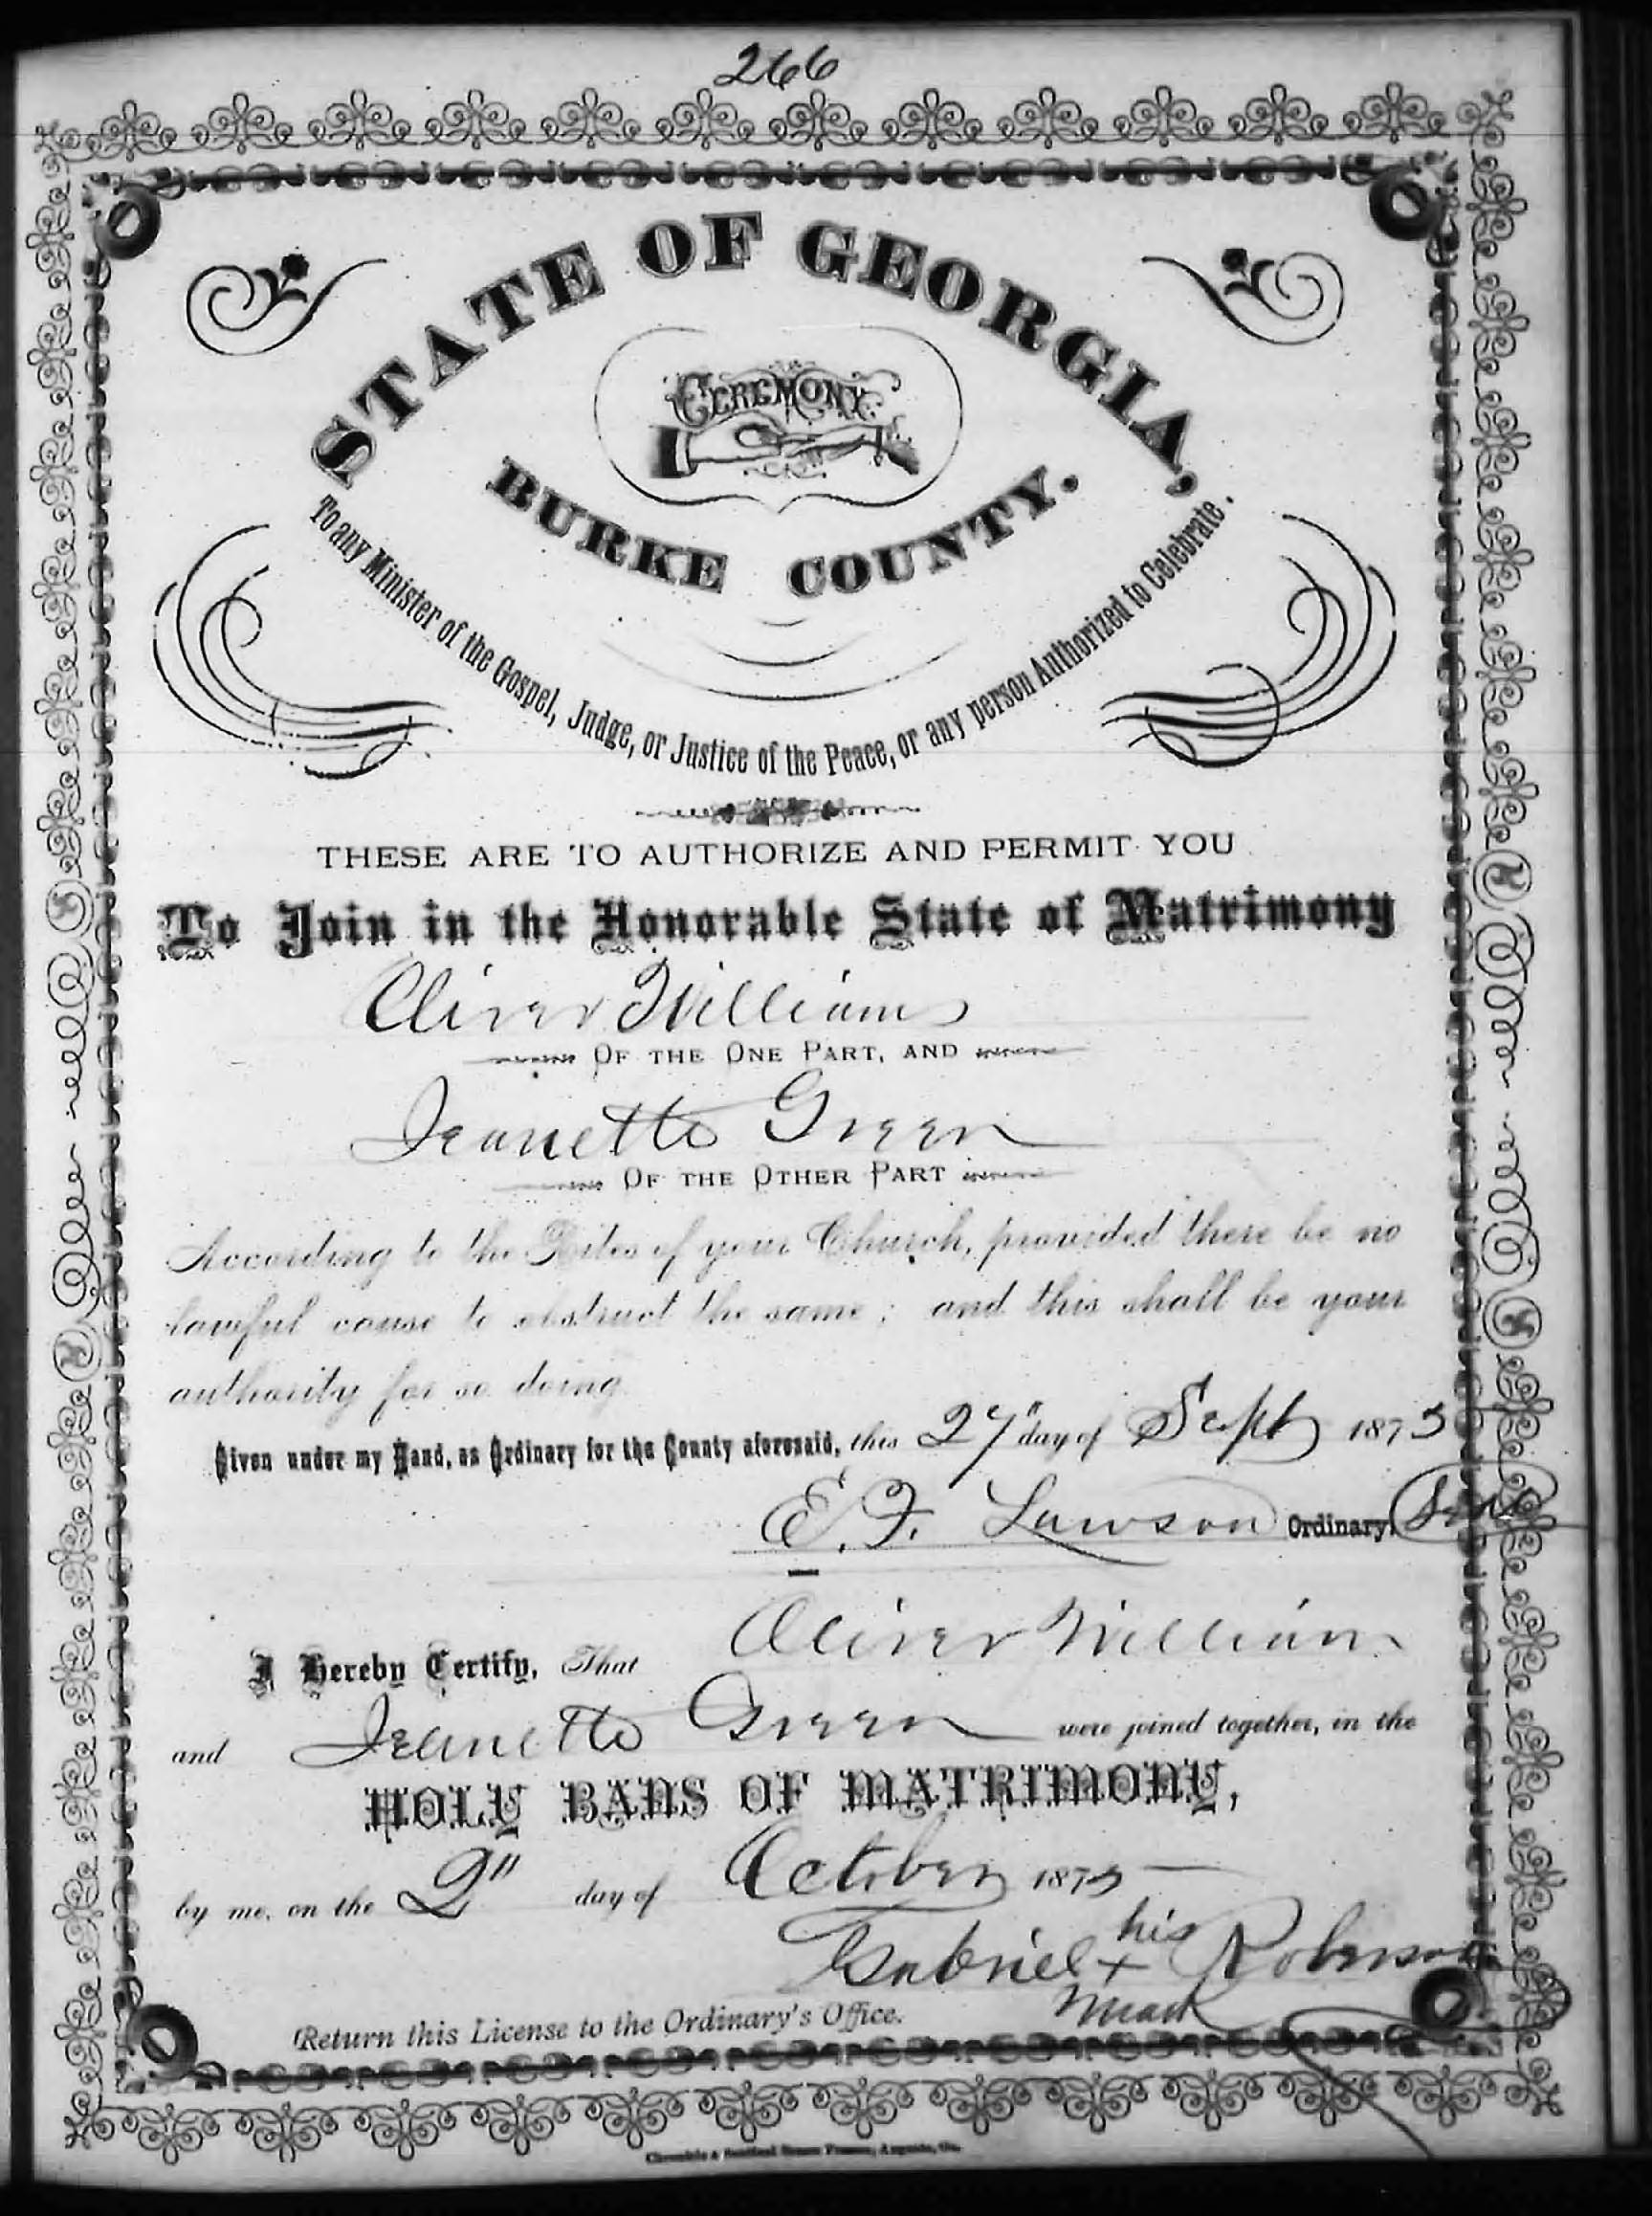 266
STATE OF GEORGIA,
CEREMONY
BURKE COUNTY.
To any Minister of the Gospel, Judge, or Justice of the Peace, or any person Authorized to Celebrate.
THESE ARE TO AUTHORIZE AND PERMIT YOU
To Join in the Honorable State of Matrimony
Oliver Williams
OF THE ONE PART, AND
Jeanette Green
OF THE OTHER PART
According to the Rites of your Church, provided there be no
lawful cause to obstruct the same; and this shall be your
authority for so doing
Given under my Hand, as Ordinary for the County aforesaid, this 27" day of Sept 1875
E. F. Lawson Ordinary.
I Hereby Certify, That Oliver Williams
and Jeanette Green were joined together, in the
HOLY BANS OF MATRIMONY,
by me, on the 2" day of October 1875
his
Gabriel + Roberson
mark
Return this License to the Ordinary's Office.
Chronicle & Sentinel Steam Presses, Augusta, Ga.